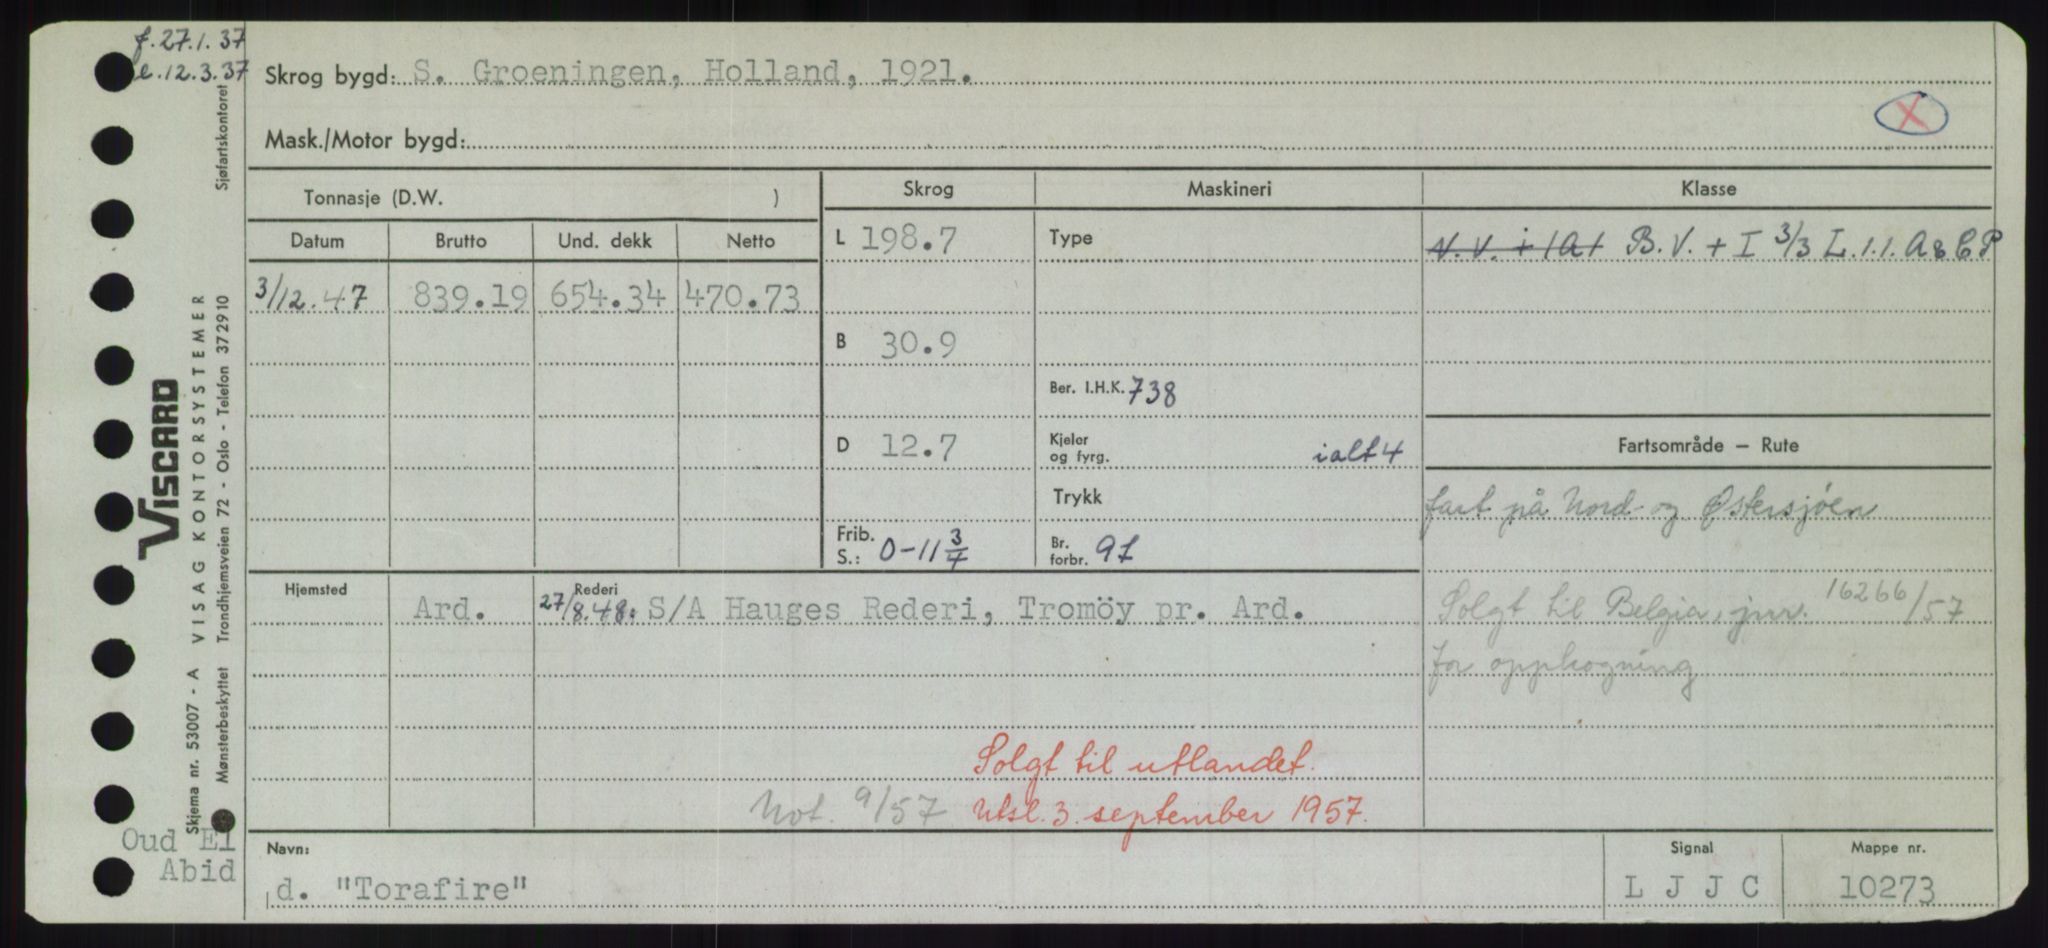 f. 27.1.37
e. 12.3.37
Skrog bygd: S. Groeningen, Holland, 1921.
X
Mask./Motor bygd:
Tonnasje (D.W. )
Skrog
Maskineri
Klasse
Datum Brutto Und. dekk Netto
L 198.7
Type
N.V. + 1A1 B.V. + I 3/3 L.1.1. A & C P
3/12.47 839.19 654.34 470.73
B 30.9
Ber. I.H.K. 738
D 12.7
Kjeler og fyrg. ialt 4
Fartsområde – Rute
Trykk
fart på Nord- og Østersjöen
Frib. S.: 0-11 3/4
Br. forbr. 9t
Hjemsted
Rederi
Ard. 27/8.48: S/A Hauges Rederi, Tromöy pr. Ard.
Solgt til Belgia, jnr. 16266/57
for opphogning
Solgt til utlandet.
Not. 9/57 Utsl. 3. september 1957.
Oud El
Abid
Navn:
d. "Torafire"
Signal
L J J C
Mappe nr.
10273
VISCARD
Skjema nr. 53007 - A VISAG KONTORSYSTEMER
Mønsterbeskyttet Trondhjemsveien 72 - Oslo - Telefon 372910
Sjøfartskontoret